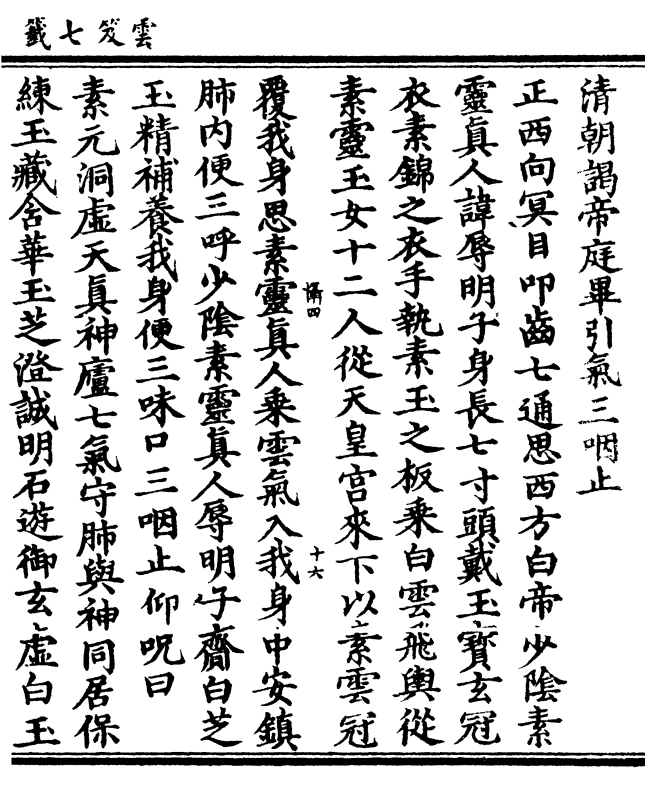 雲笈七籤
清朝謁帝庭畢引氣三咽止
正西向冥目叩齒七通思西方白帝少陰素
靈眞人諱辱明子身長七寸頭戴玉寶玄冠
衣素錦之衣手執素玉之板乗白雲飛輿從
素靈玉女十二人從天皇宫來下以素雲冠
覆我身思素靈眞人乗雲氣入我身中安鎮
肺内便三呼少陰素靈眞人辱明子齎白芝
玉精補養我身便三味口三咽止仰呪曰
素元洞虛天眞神廬七氣守肺與神同居保
練玉藏含華玉芝澄誠明石遊御玄虛白玉
十六